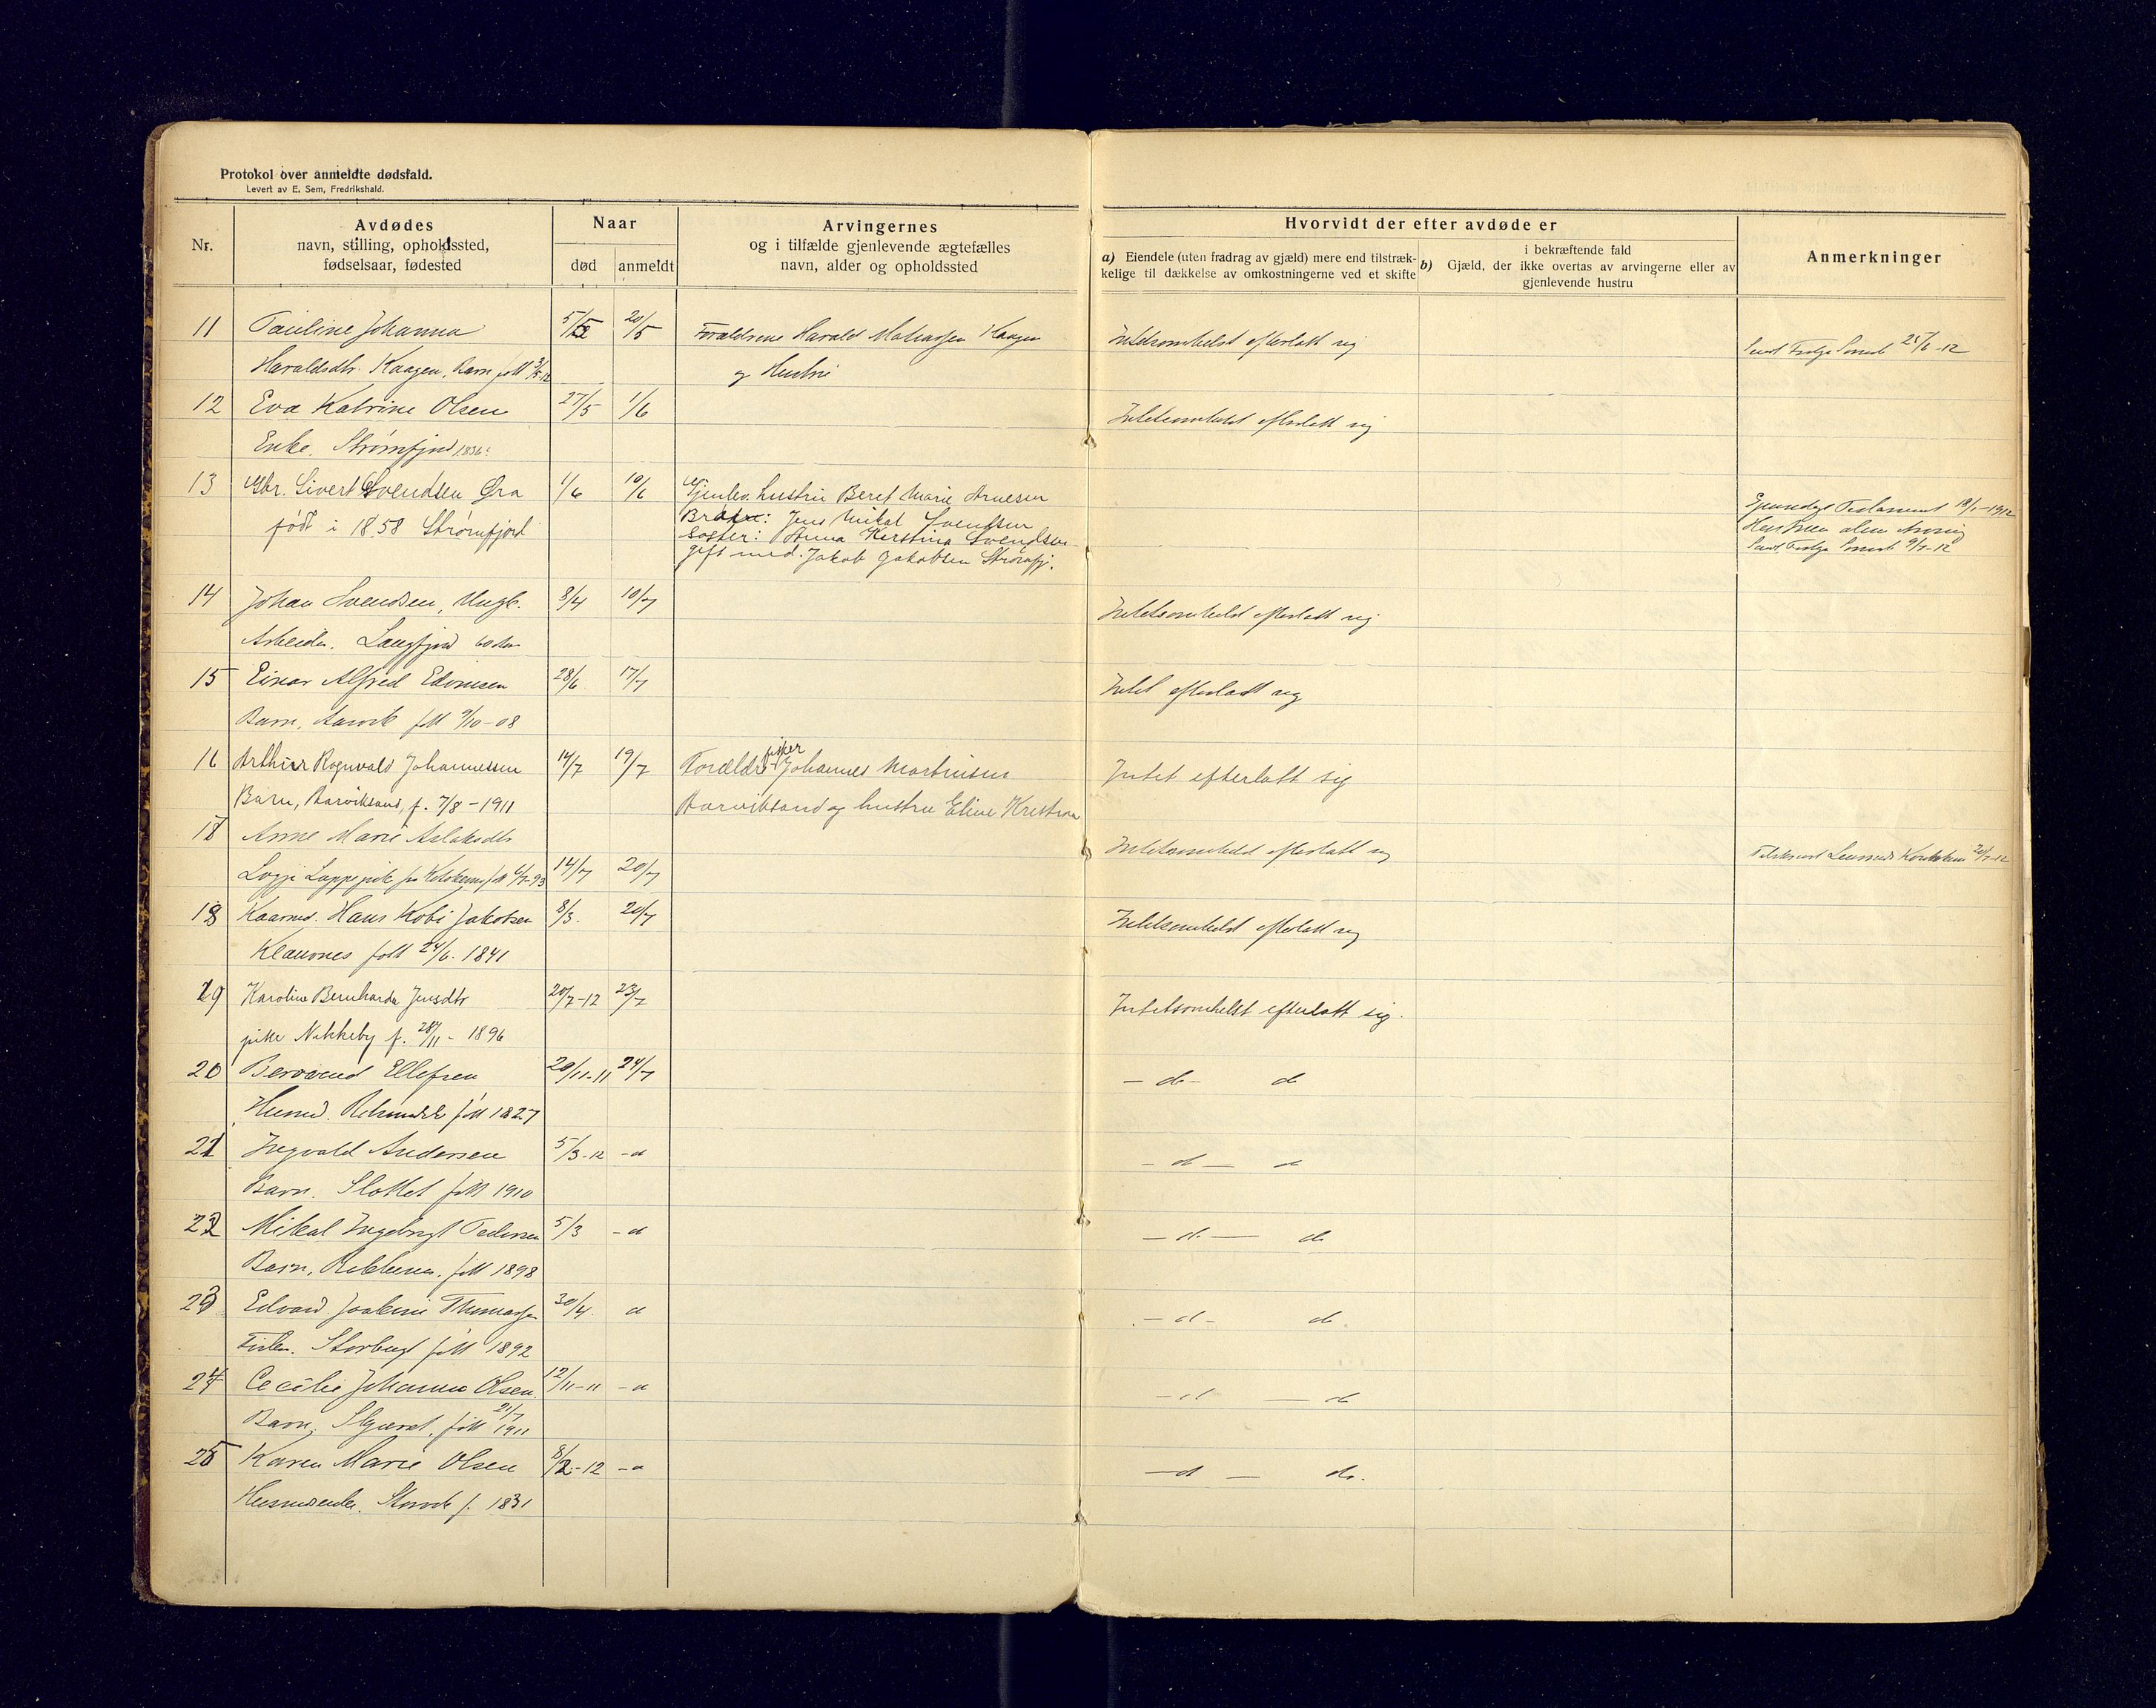 Protokol over anmeldte dødsfald.
Levert av E. Sem, Fredrikshald.
Nr.
Avdødes
navn, stilling, opholdssted,
fødselsaar, fødested
Naar
død
anmeldt
Arvingernes
og i tilfælde gjenlevende ægtefælles
navn, alder og opholdssted
Hvorvidt der efter avdøde er
a) Eiendele (uten fradrag av gjæld) mere end tilstræk-
kelige til dækkelse av omkostningerne ved et skifte
i bekræftende fald
b) Gjæld, der ikke overtas av arvingerne eller av
gjenlevende hustru
Anmerkninger
11 Pauline Johanna 5/5 20/5 Forældrene Harald Kaagen Intetsomhelst efterlatt sig 25/6-12
Haraldsdtr. Kaagen, Barn født og Hustru
12 Eva Katrine Olsen 27/5 1/6 Intetsomhelst efterlatt sig
Enke. Strømfjord 1836
13 Sivert Svendsen Øra 1/6 10/6 Gjenlev. hustru Beret Marie Arnesen
født i 1858 Strømfjord Brødre: Jens Mikal Svendsen
Søster: Anna Kerstina Svendsen
gift med Jakob Jakobsen Strømfj. 9/7-12
14 Johan Svendsen, Ungk. 8/4 10/7 Intetsomhelst efterlatt sig
Arbeider. Langfjord
15 Einar Alfred Edvinsen 28/6 17/7 Intet efterlatt sig
Barn, født 9/10-08
16 Arthur Rognvald Johannessen 14/7 19/7 Forældre fisker Johannes Martinsen Intet efterlatt sig
Barn, Barviksand, f. 7/8-1911 Barviksand og hustru Eline Kristina
18 Anne Marie Aslaksdtr Intetsomhelst efterlatt sig 20/7-12
Logje 14/7 20/7
18 Kaarmd. Hans Kobi Jakobsen 8/3. 20/7 Intetsomhelst efterlatt sig
Klauvnes født 24/6. 1841
19 Karoline Bernharda Jensdtr 20/7-12 23/7 Intetsomhelst efterlatt sig.
pike Nikkeby f. 28/11-1896
20 Ellefsen 20/11-11 24/7 - do - do
Husmd. født 1827
21 Ingvald Andersen 5/3-12 - d - d
Barn. Slottet født 1910
22 Mikal Ingebrigt Pedersen 5/3 - d - do
Barn, født 1898
23 Edvard Thomassen 30/4. - d - do.
født 1892
24 Cecilie Johanna Olsen. 12/11-11 - d - do
Barn, født 21/7 1911
25 Karen Marie Olsen 8/2-12 - d - do.
f. 1831